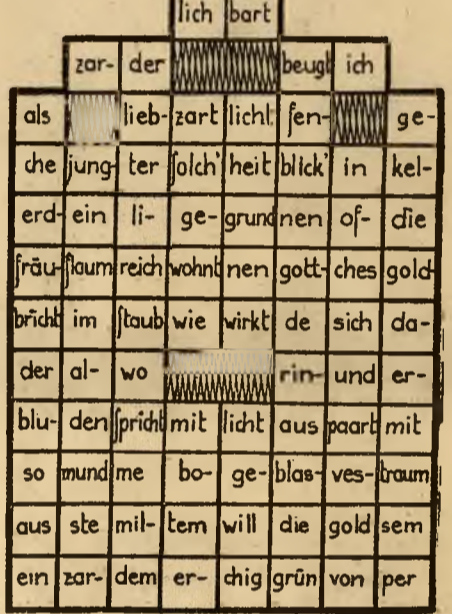 lich bart
zar- der beugt ich
als lieb- zart licht fen- ge-
che jung- ter ſolch' heit blick' in kel-
erd- ein li- ge- grund nen of- die
fräu- flaum reich wohnt nen gott- ches gold-
bricht im ſtaub wie wirkt de sich da-
der al- wo rin- und er-
blu- den ſpricht mit licht aus paart mit
so mund me bo- ge- blas- ves- traum
aus ste mil- tem will die gold sem
ein zar- dem er- chig grün von per